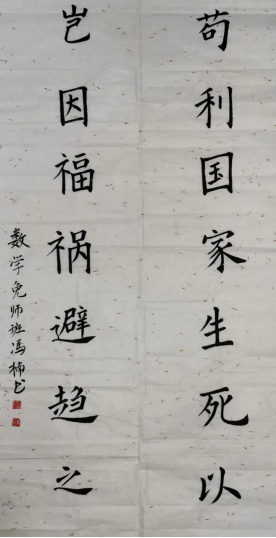 苟利国家生死以
岂因福祸避趋之
数学免师班冯楠书